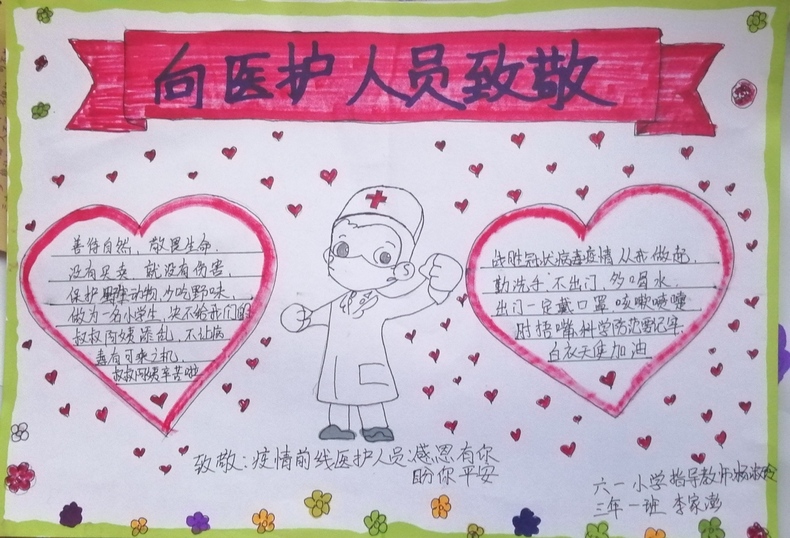 向医护人员致敬
善待自然，敬畏生命．
没有买卖，就没有伤害，
保护野生动物，勿吃野味，
做为一名小学生，决不给我们的
叔叔阿姨添乱，不让病
毒有可乘之机，
叔叔阿姨辛苦啦
战胜冠状病毒疫情从我做起，
勤洗手，不出门，多喝水，
出门一定戴口罩咳嗽喷嚏
时捂嘴科学防范需记牢
白衣天使加油
致敬：疫情前线医护人员：感恩有你
盼你平安
六一小学指导教师
三年一班 李家澎